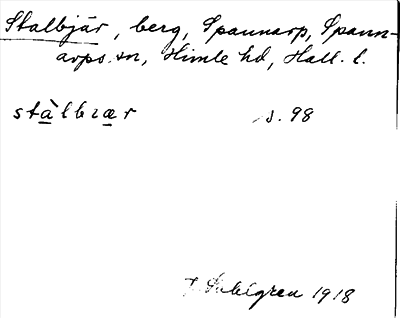 Stalbjär, berg, Spannarp, Spann-
arps sn, Himle hd, Hall. l.
stàlbɪær s. 98
1918